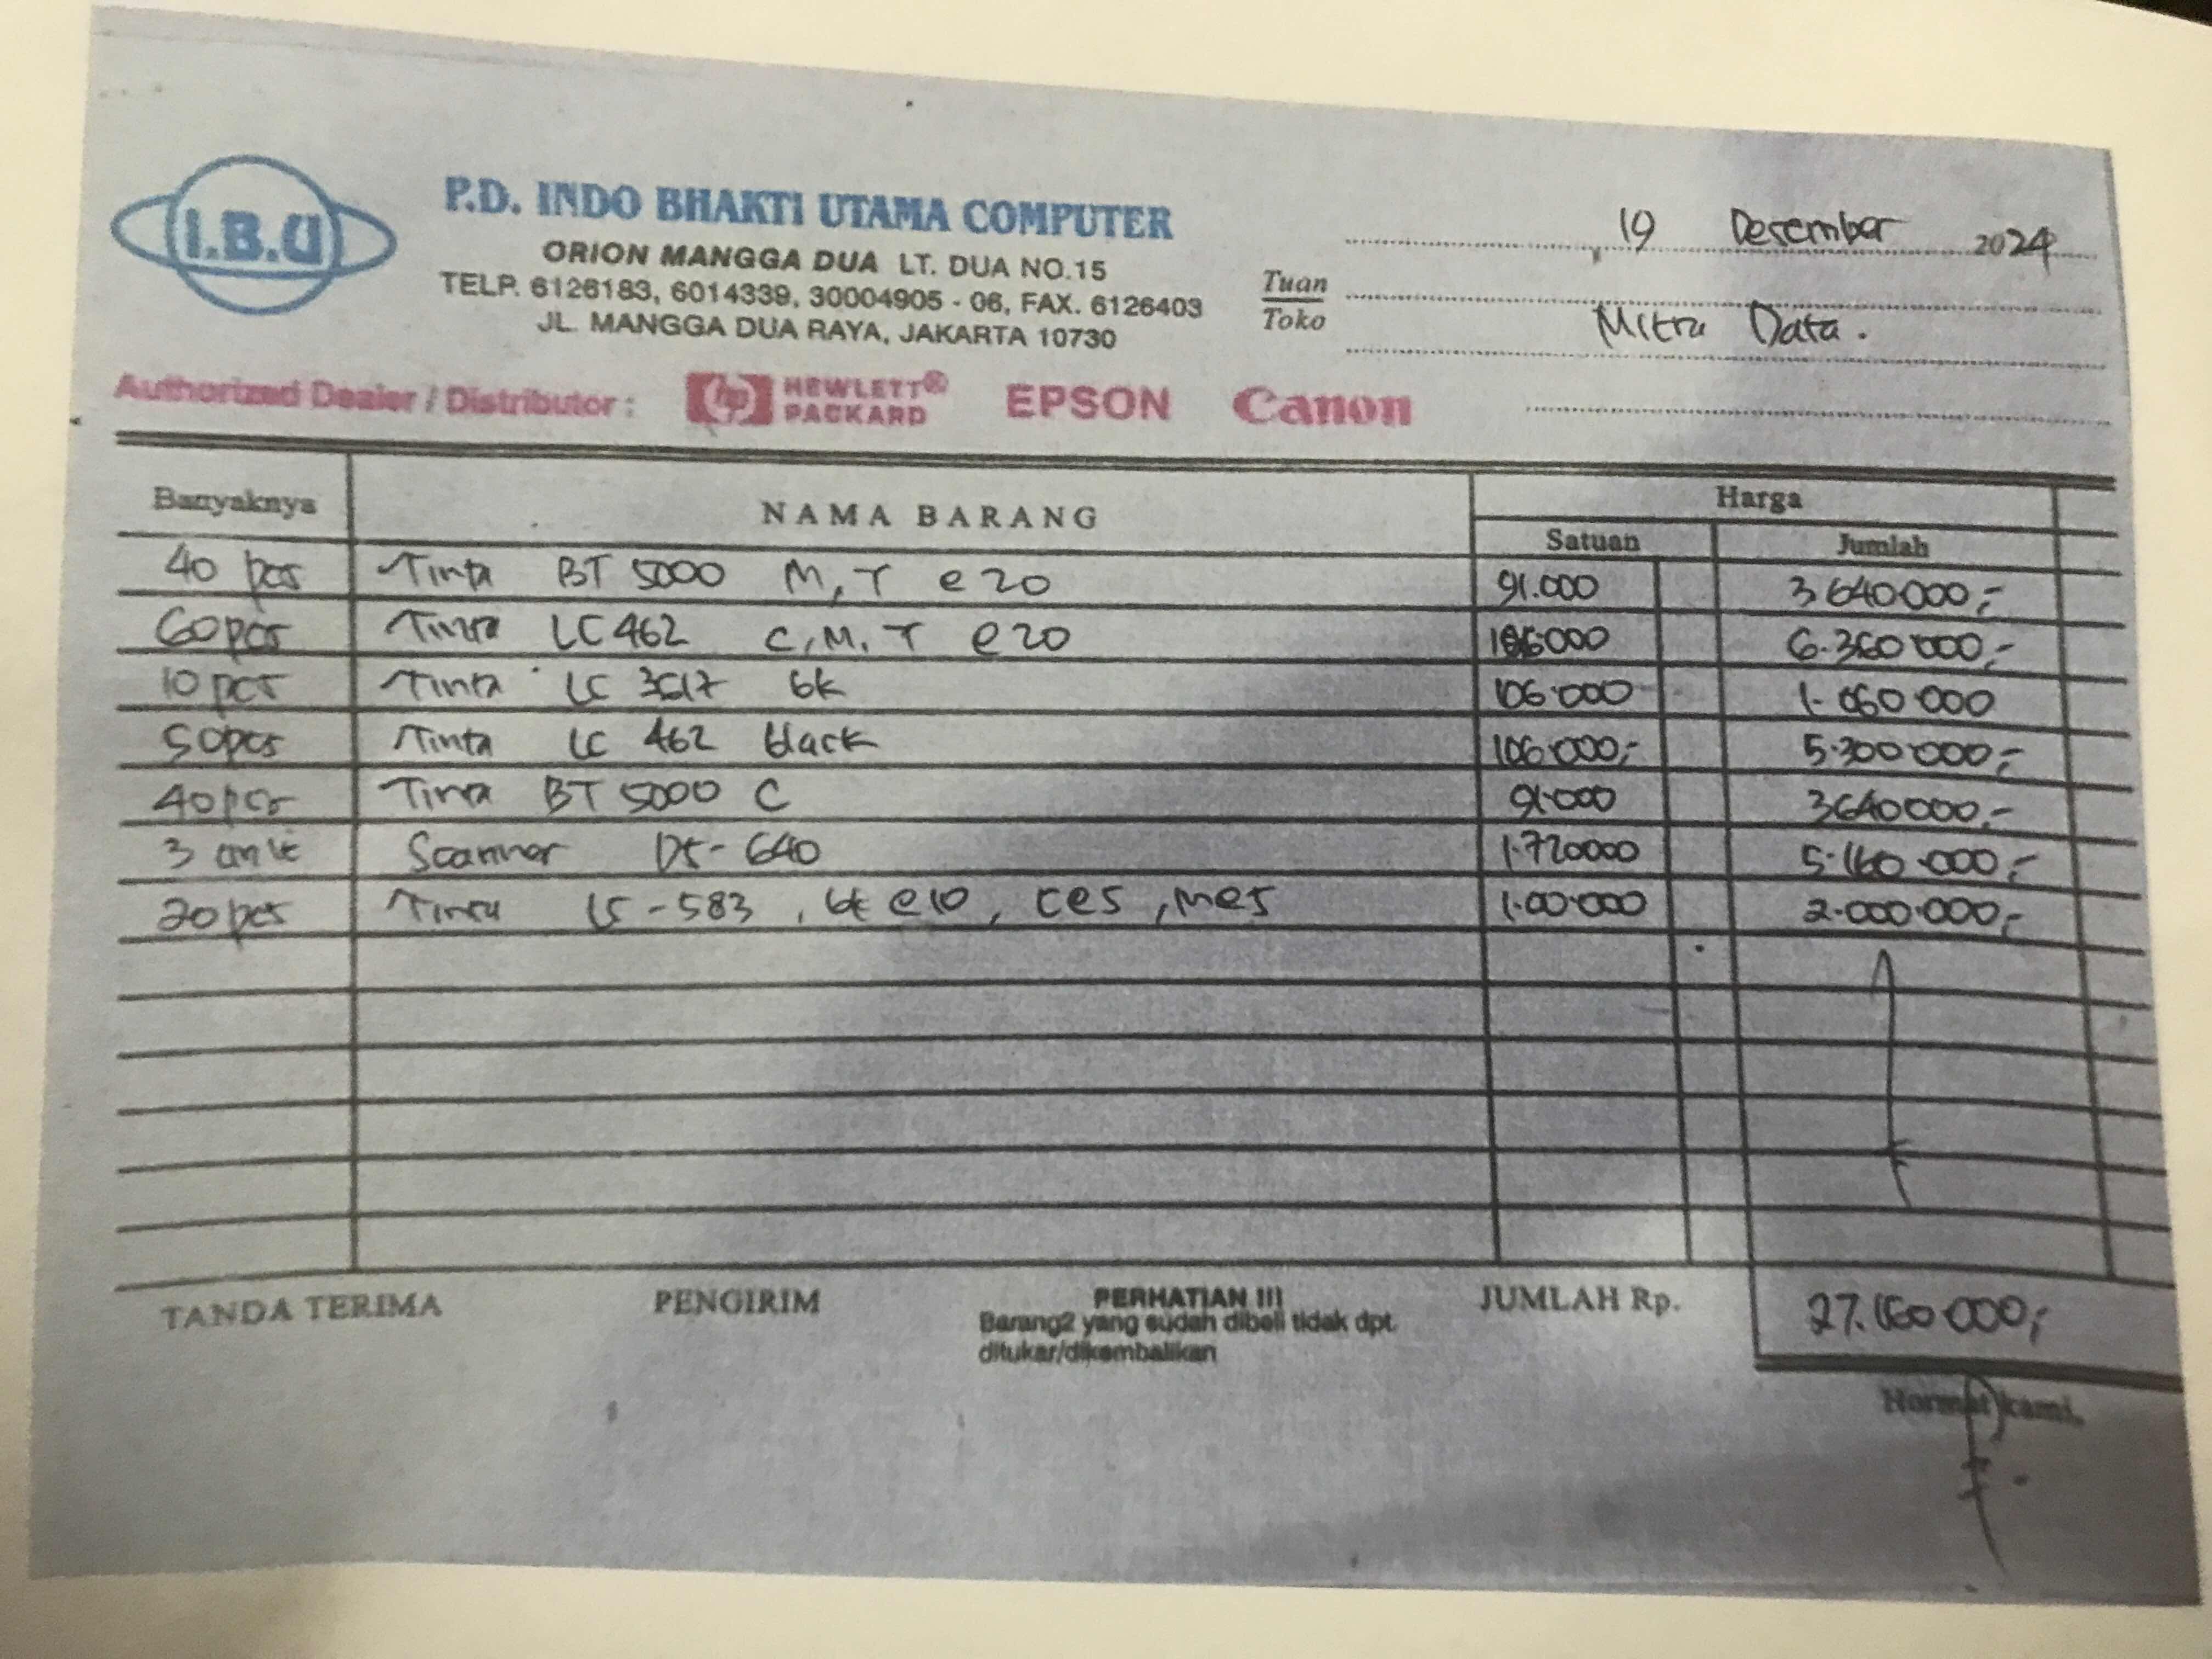 I.B.U
P.D. INDO BHAKTI UTAMA COMPUTER
ORION MANGGA DUA LT. DUA NO.15
TELP. 6126183, 6014339, 30004905 - 06, FAX. 6126403
JL. MANGGA DUA RAYA, JAKARTA 10730
, 19 Desember 2024
Tuan
Toko
Mitra Data.
Authorized Dealer / Distributor : hp HEWLETT® PACKARD EPSON Canon
Banyaknya NAMA BARANG Harga
Satuan Jumlah
40 pcs Tinta BT 5000 M, Y @ 20 91.000 3 640 000,-
60 pcs Tinta LC 462 C, M, Y @ 20 106.000 6.360 000,-
10 pcs Tinta LC 3617 bk 106.000 1.060 000
50 pcs Tinta LC 462 black 106.000,- 5.300 000,-
40 pcs Tinta BT 5000 C 91.000 3640000,-
3 unit Scanner DS-640 1.720000 5.160.000,-
20 pcs Tinta -583, bk @10, C@5, M@5 1.00.000 2.000.000,-
TANDA TERIMA PENGIRIM PERHATIAN !!! JUMLAH Rp. 27.160 000,-
Barang2 yang sudah dibeli tidak dpt.
ditukar/dikembalikan
Hormat kami,